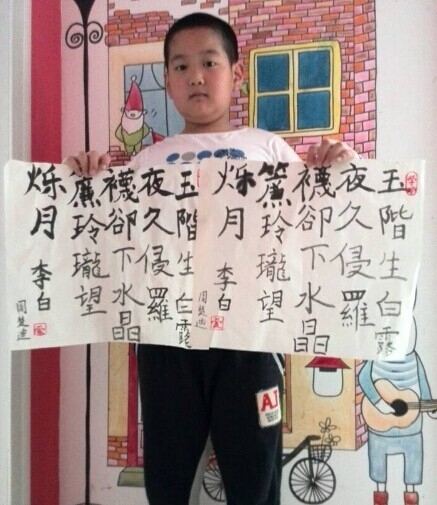 玉階生白露
夜久侵羅
襪卻下水晶
簾玲瓏望
烁月 李白
周楚迪
玉階生白露
夜久侵羅
襪卻下水晶
簾玲瓏望
烁月 李白
周楚迪
AJ